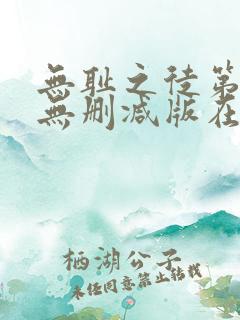 無耻之徒第
無删减版在
栖湖公子
未经同意禁止转载